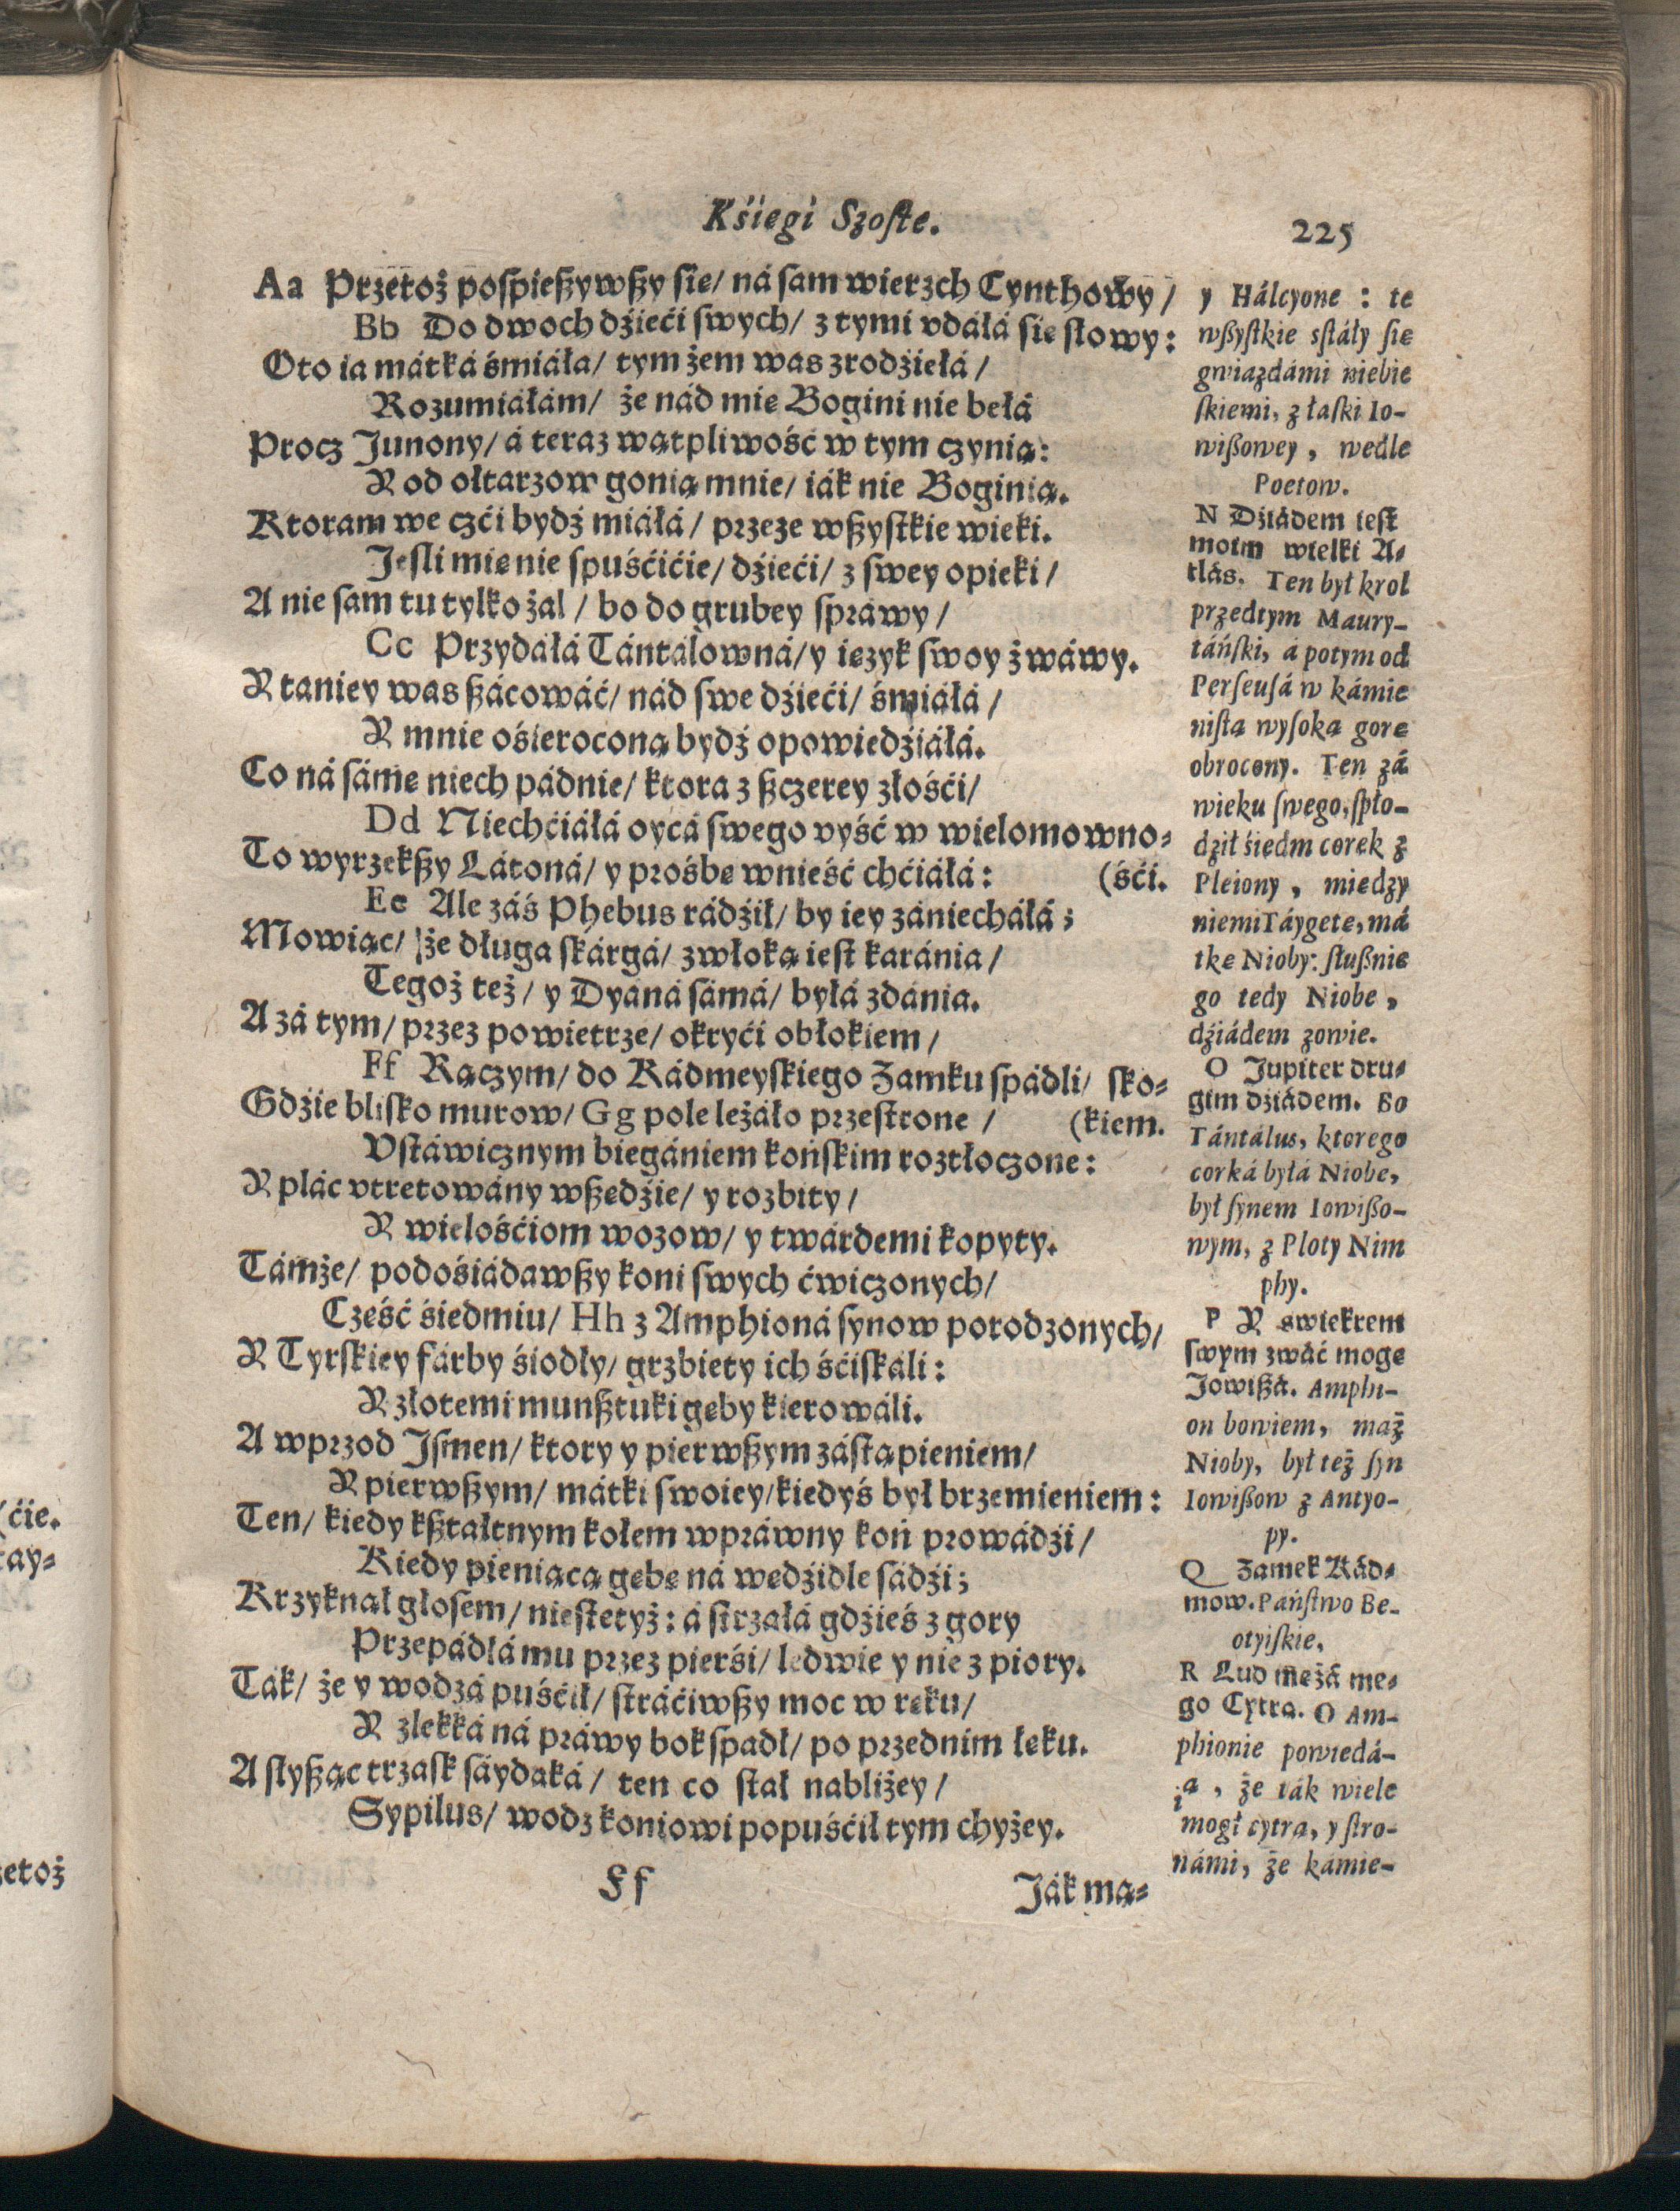 Kśiegi Szoste.
225
Aa Przetoż pospießywßy sie/ ná sam wierzch Cynthowy/
Bb Do dwoch dźieći swych/ z tymi vdáłá sie słowy:
Oto ia mátká śmiáła/ tym żem was zrodźiełá/
Rozumiáłám/ że nád mie Bogini nie bełá
Procz Junony/ á teraz wątpliwość w tym czynią:
Y od ołtarzow gonią mnie/ iák nie Boginią.
Ktoram we czći bydź miáłá/ przeze wßystkie wieki.
Jesli mie nie spuśćićie/ dźieći/ z swey opieki/
A nie sam tu tylko żal/ bo do grubey spráwy/
Cc Przydáłá Tántálowná/ y iezyk swoy żwáwy.
Y taniey was ßácowáć/ nád swe dźieći/ śmiáłá/
Y mnie ośieroconą bydź opowiedźiáłá.
Co ná sáme niech pádnie/ ktora z ßczerey złośći/
Dd Niechćiáłá oycá swego vyść w wielomowno-
To wyrzekßy Látoná/ y prośbe wnieść chćiáłá: (śći.
Ee Ale záś Phebus rádźił/ by iey zániecháłá;
Mowiąc/ że długa skárgá/ zwłoką iest karánia/
Tegoż też/ y Dyáná sámá/ byłá zdánia.
A zá tym/ przez powietrze/ okryći obłokiem/
Ff Rączym/ do Kádmeyskiego Zamku spádli/ sko-
Gdźie blisko murow/ Gg pole leżáło przestrone/ (kiem.
Vstáwicznym biegániem końskim roztłoczone:
Y plác vtretowány wßedźie/ y rozbity/
Y wielośćiom wozow/ y twárdemi kopyty.
Támże/ podośiádawßy koni swych ćwiczonych/
Cześć śiedmiu/ Hh z Amphioná synow porodzonych/
Y Tyrskiey fárby śiodły/ grzbiety ich śćiskáli:
Y złotemi munßtuki geby kierowáli.
A wprzod Jsmen/ ktory y pierwßym zástąpieniem/
Y pierwßym/ mátki swoiey/ kiedyś był brzemieniem:
Ten/ kiedy kßtałtnym kołem wpráwny koń prowádźi/
Kiedy pieniącą gebe ná wedźidle sádźi;
Krzyknął głosem/ niestetyż: á strzałá gdźieś z gory
Przepádłá mu przez pierśi/ ledwie y nie z piory.
Ták/ że y wodzá puśćił/ stráćiwßy moc w reku/
Y zlekká ná práwy bok spadł/ po przednim łeku.
A słyßąc trzask sáydaká/ ten co stał nabliżey/
Sypilus/ wodz koniowi popuśćił tym chyżey.
Ff
Ják ma-
y Hálcyone : te
wßystkie sstáły sie
gwiazdámi niebie
skiemi, z łaski Io-
wißowey, wedle
Poetow.
N Dźiádem iest
moim wielki A-
tlás. Ten był krol
przedtym Maury-
táński, á potym od
Perseusá w kámie
nistą wysoką gore
obrocony. Ten zá
wieku swego, spło-
dził śiedm corek z
Pleiony, miedzy
niemi Táygete, má
tke Nioby: słußnie
go tedy Niobe,
dźiádem zowie.
O Jupiter dru-
gim dźiádem. Bo
Tántálus, ktorego
corká byłá Niobe,
był synem Iowißo-
wym, z Ploty Nim
phy.
P Y swiekrem
swym zwáć moge
Jowißá. Amphi-
on bowiem, mąż
Nioby, był też syn
Iowißow z Antyo-
py.
Q Zamek Kád-
mow. Páństwo Be-
otyiskie,
R Lud mężá me-
go Cytrą. O Am-
phionie powiedá-
ią, że ták wiele
mogł cytrą, y stro-
námi, że kámie-
(ćie.
zetoż